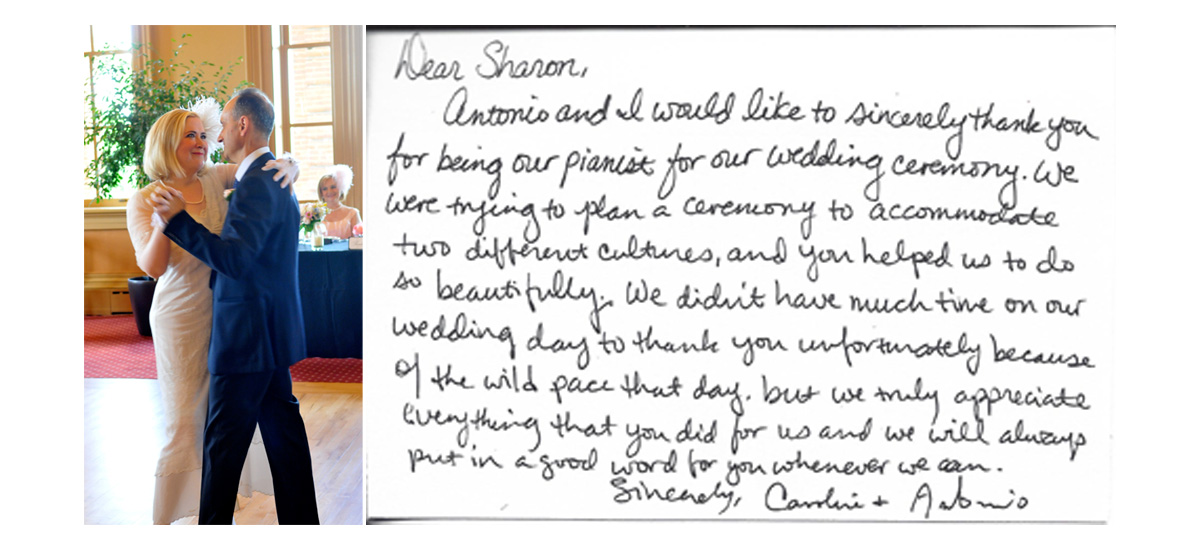 Dear Sharon,
Antonio and I would like to sincerely thank you
for being our pianist for our wedding ceremony. We
were trying to plan a ceremony to accommodate
two different cultures, and you helped us to do
so beautifully. We didn't have much time on our
wedding day to thank you unfortunately because
of the wild pace that day. but we truly appreciate
Everything that you did for us and we will always
put in a good word for you whenever we can.
Sincerely, Caroline + Antonio